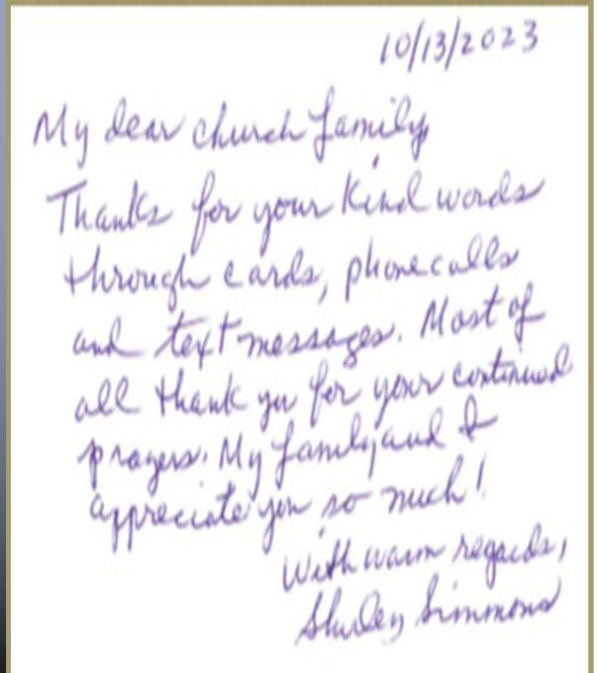 10/13/2023
My dear church family,
Thanks for your kind words
through cards, phone calls
and text messages. Most of
all thank you for your continued
prayers. My family and I
appreciate you so much!
With warm regards,
Shirley Simmons